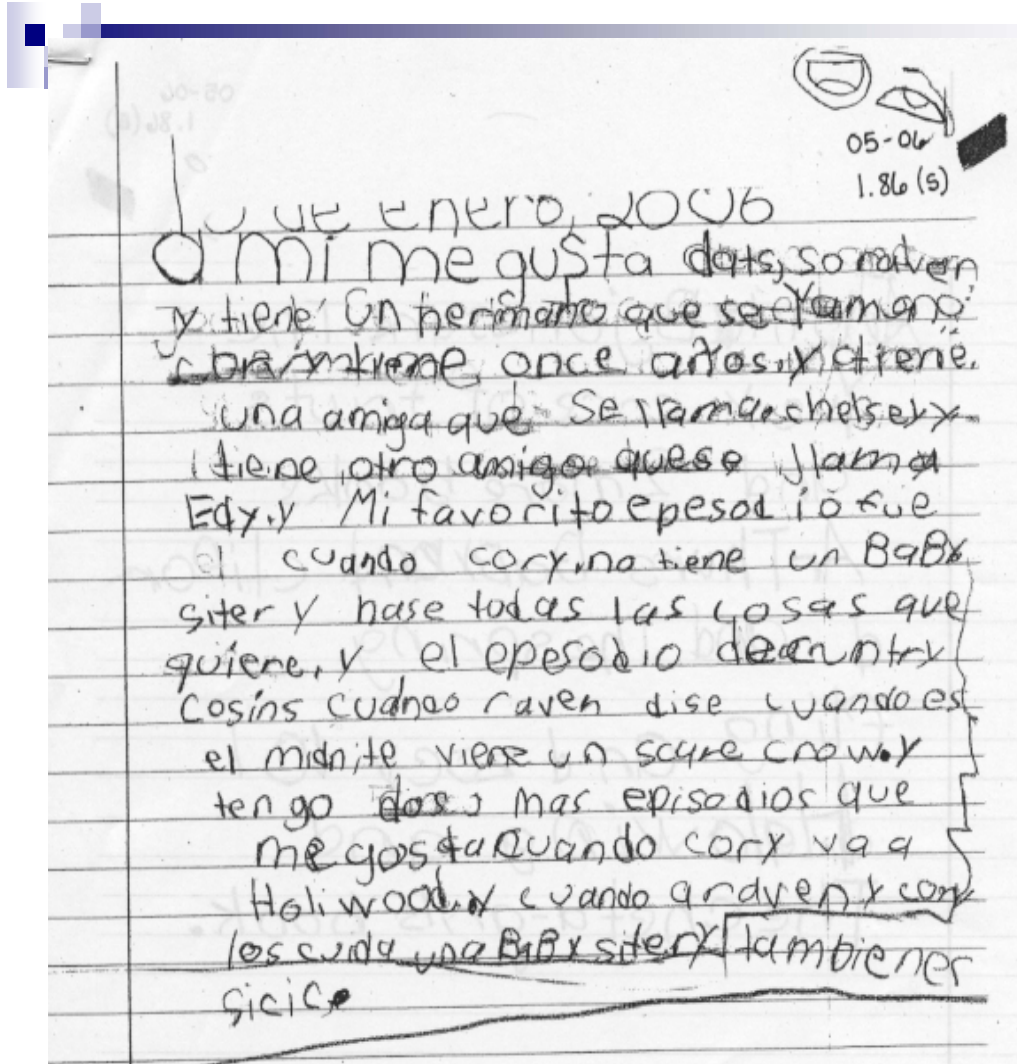 05-06
1.86 (s)
de enero, 2006
a mi me gusta dats, so raven
y tiene un hermano que se llama
cory y tiene once años. y tiene
una amiga que se llama chelsey y
tiene otro amigo quese llama
Edy. y Mi favorito epesodio fue
cuando cory. no tiene un BaBy
siter y hase todas las cosas que
quiere, y el epesodio de cuntry
Cosins cuando raven dise cuando es
el midnite viene un scare crow. y
tengo dos mas episodios que
me gosta cuando cory va a
Holiwood. y cuando a raven y cory
los cuida una BaBy siter y tambien